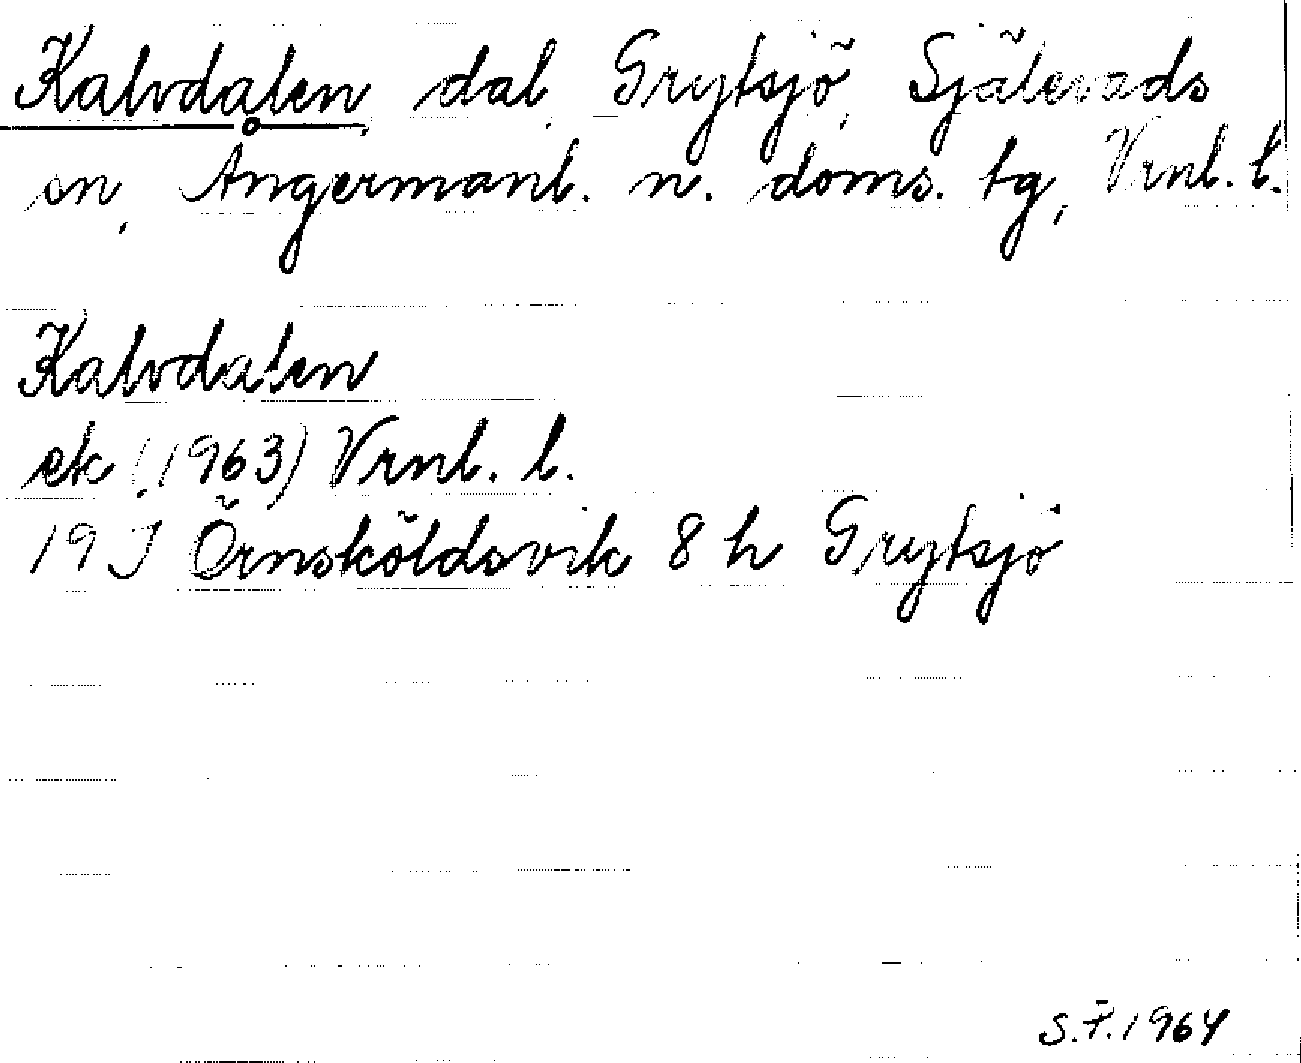 Kalvdalen, dal, Grytsjö, Själevads
sn, Ångermanl. n. doms. tg, Vrnl. l.
Kalvdalen
ek (1963) Vrnl. l.
19 J Örnsköldsvik 8 h Grytsjö
S.F. 1964